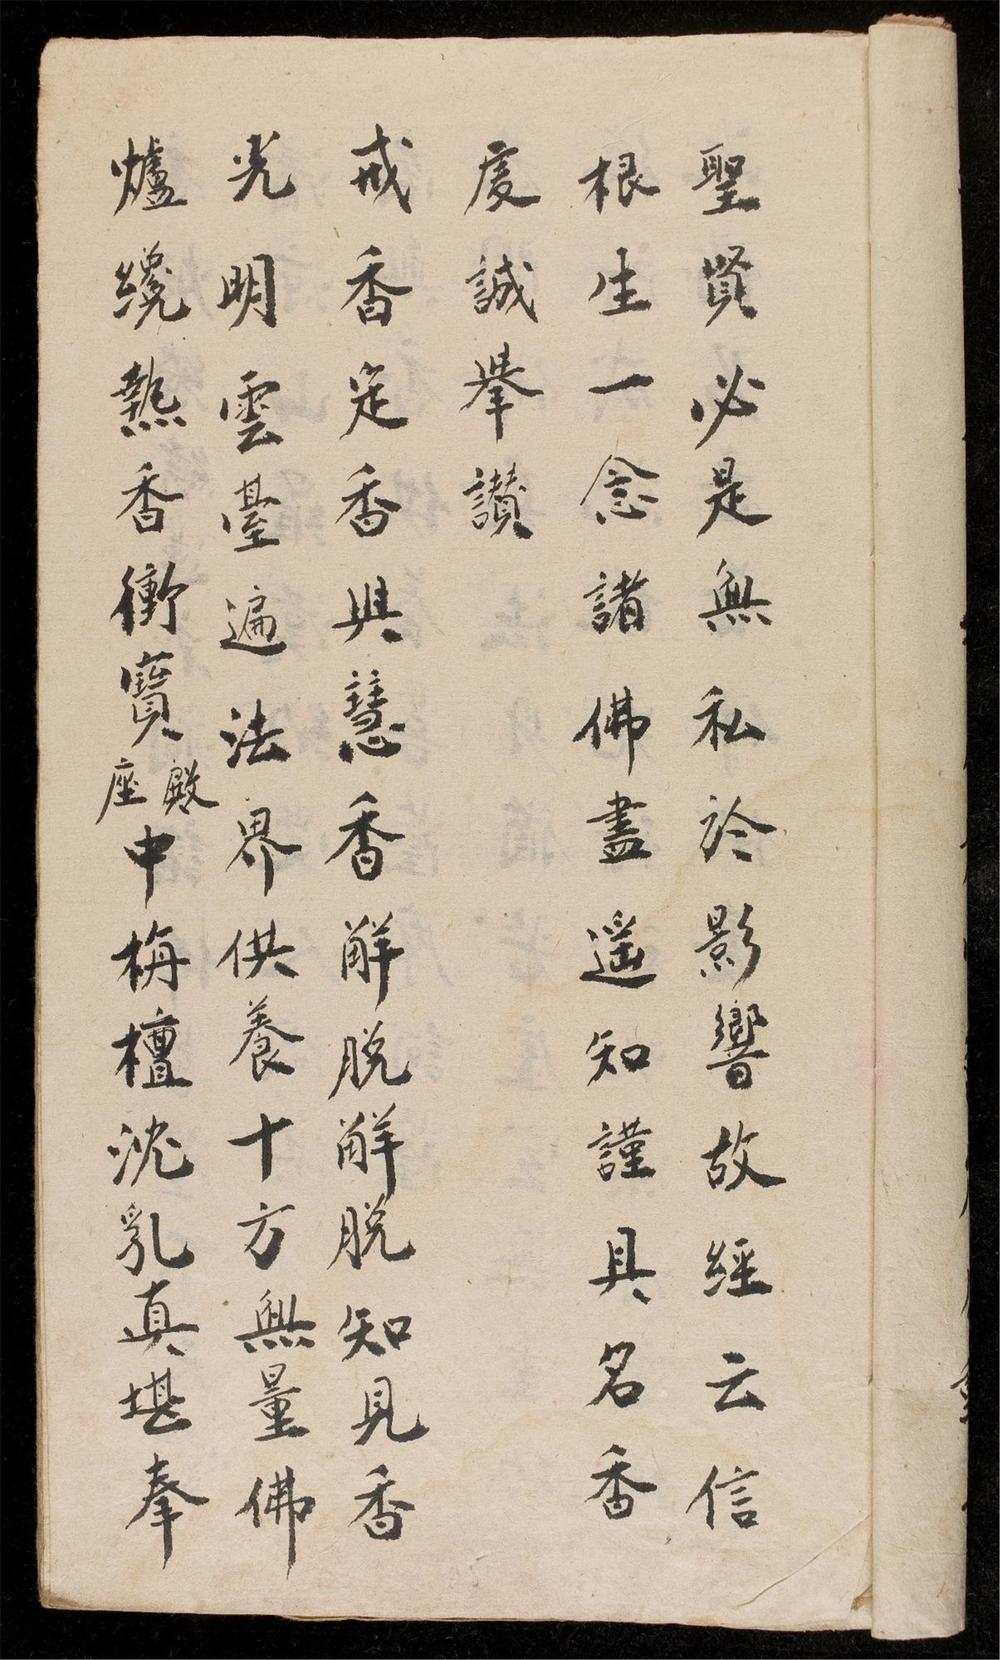 聖賢必是無私於影響故經云信
根生一念諸佛盡遥知謹具名香
虔誠舉讃
戒香定香與慧香解脱解脱知見香
光明雲臺遍法界供養十方無量佛
爐纔熱香衝寶殿座中栴檀沈乳真堪奉